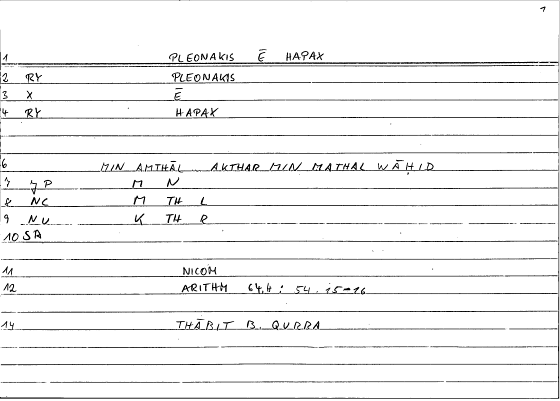 1
1 PLEONAKIS Ē HAPAX
2 RY PLEONAKIS
3 X Ē
4 RY HAPAX
6 MIN AMTHĀL AKTHAR MIN MATHAL WĀḤID
7 JP M N
8 NC M TH L
9 NU K TH R
10 SA
11 NICOM
12 ARITHM 64,4 : 54.15-16
14 THĀBIT B. QURRA